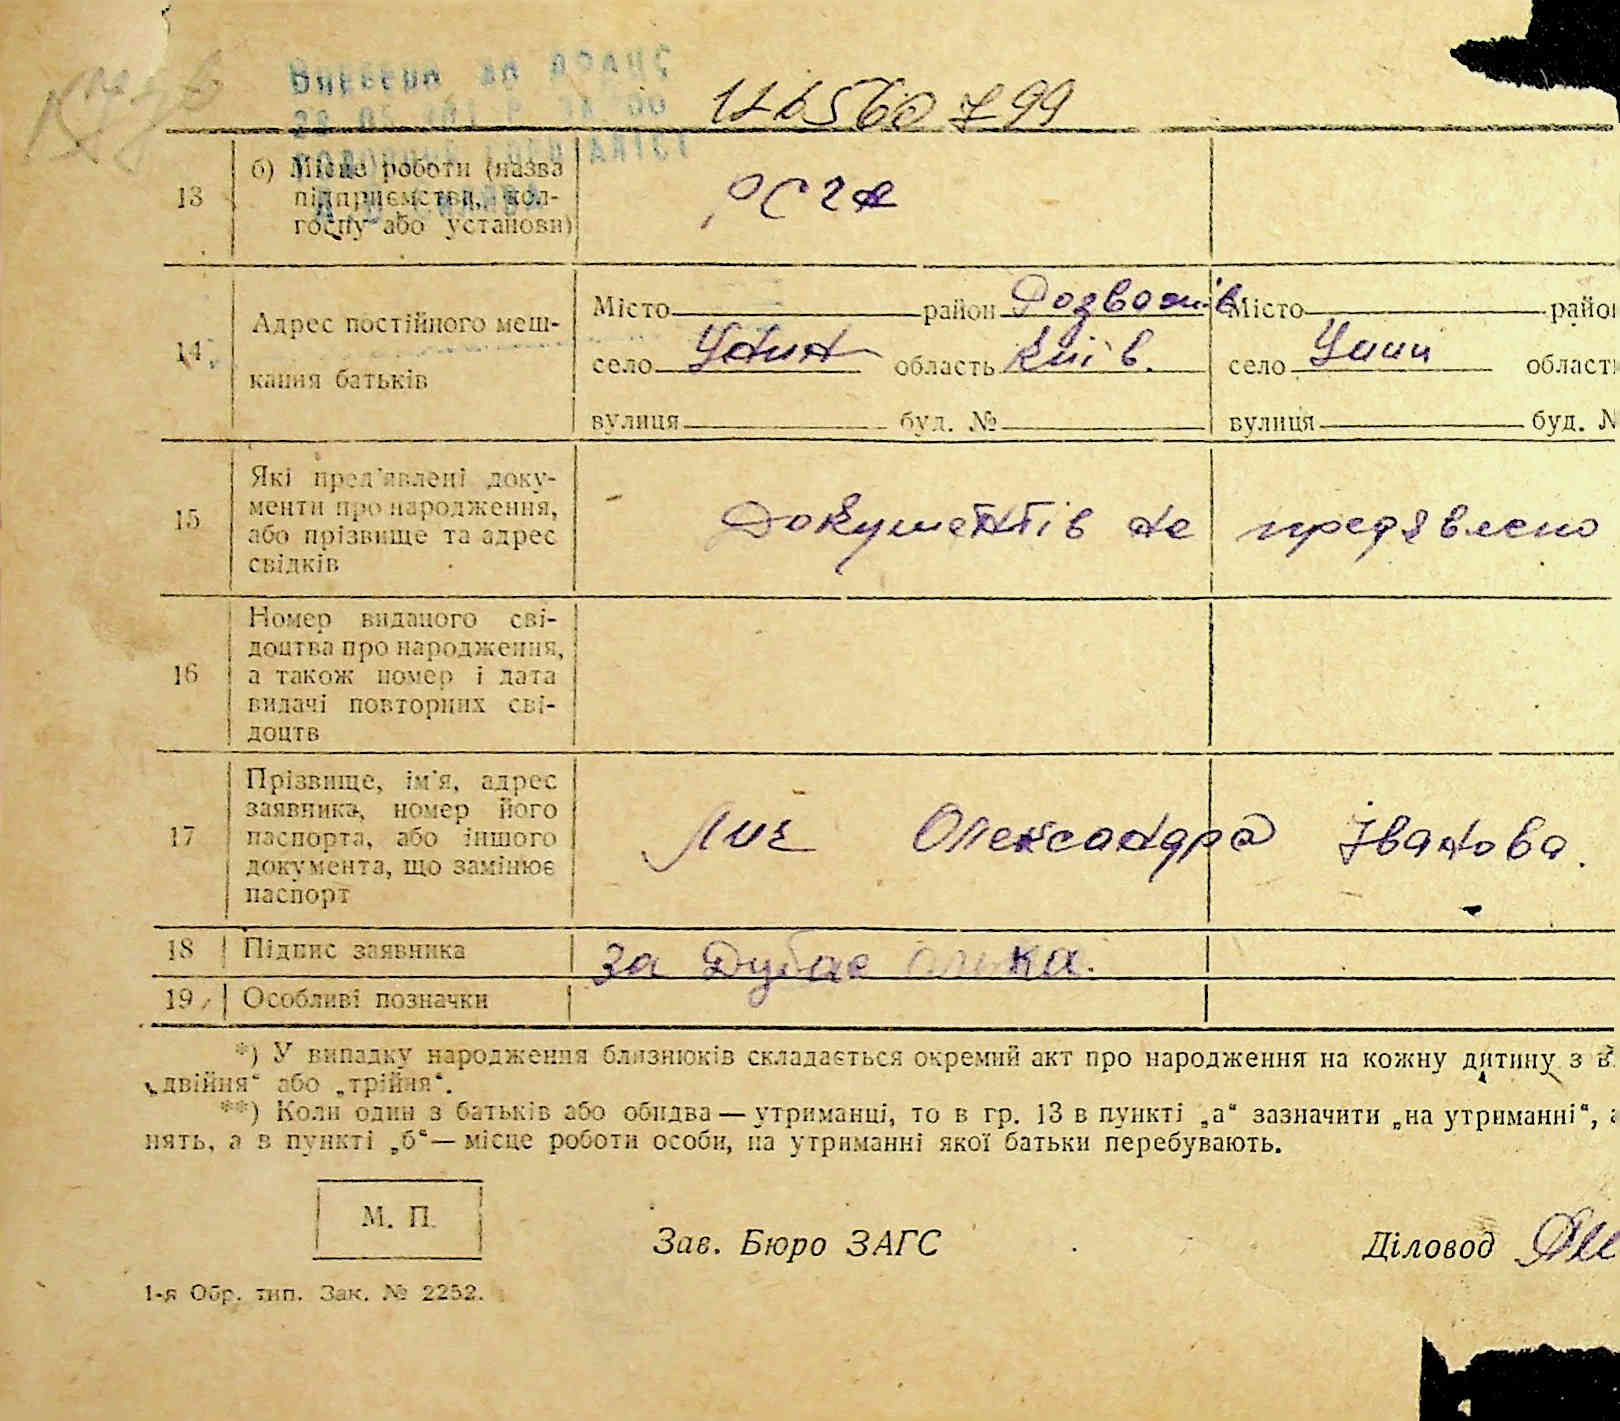 Внесено до ДРАЦС
13
б) Місце роботи (назва
підприємства, кол-
госпу або установи)
РСГА
14
Адрес постійного меш-
кання батьків
Місто район Розважів Місто район
село область Київ. село область
вулиця буд. № вулиця буд. №
15
Які пред'явлені доку-
менти про народження,
або прізвище та адрес
свідків
Документів не предявлено
16
Номер виданого сві-
доцтва про народження,
а також номер і дата
видачі повторних сві-
доцтв
17
Прізвище, ім'я, адрес
заявника, номер його
паспорта, або іншого
документа, що замінює
паспорт
Олександра Іванова.
18 Підпис заявника за
19 Особливі позначки
*) У випадку народження близнюків складається окремий акт про народження на кожну дитину з
„двійня“ або „трійня“.
**) Коли один з батьків або обидва — утриманці, то в гр. 13 в пункті „а“ зазначити „на утриманні“, а
нять, а в пункті „б“ — місце роботи особи, на утриманні якої батьки перебувають.
М. П.
Зав. Бюро ЗАГС Діловод
1-я Обр. тип. Зак. № 2252.